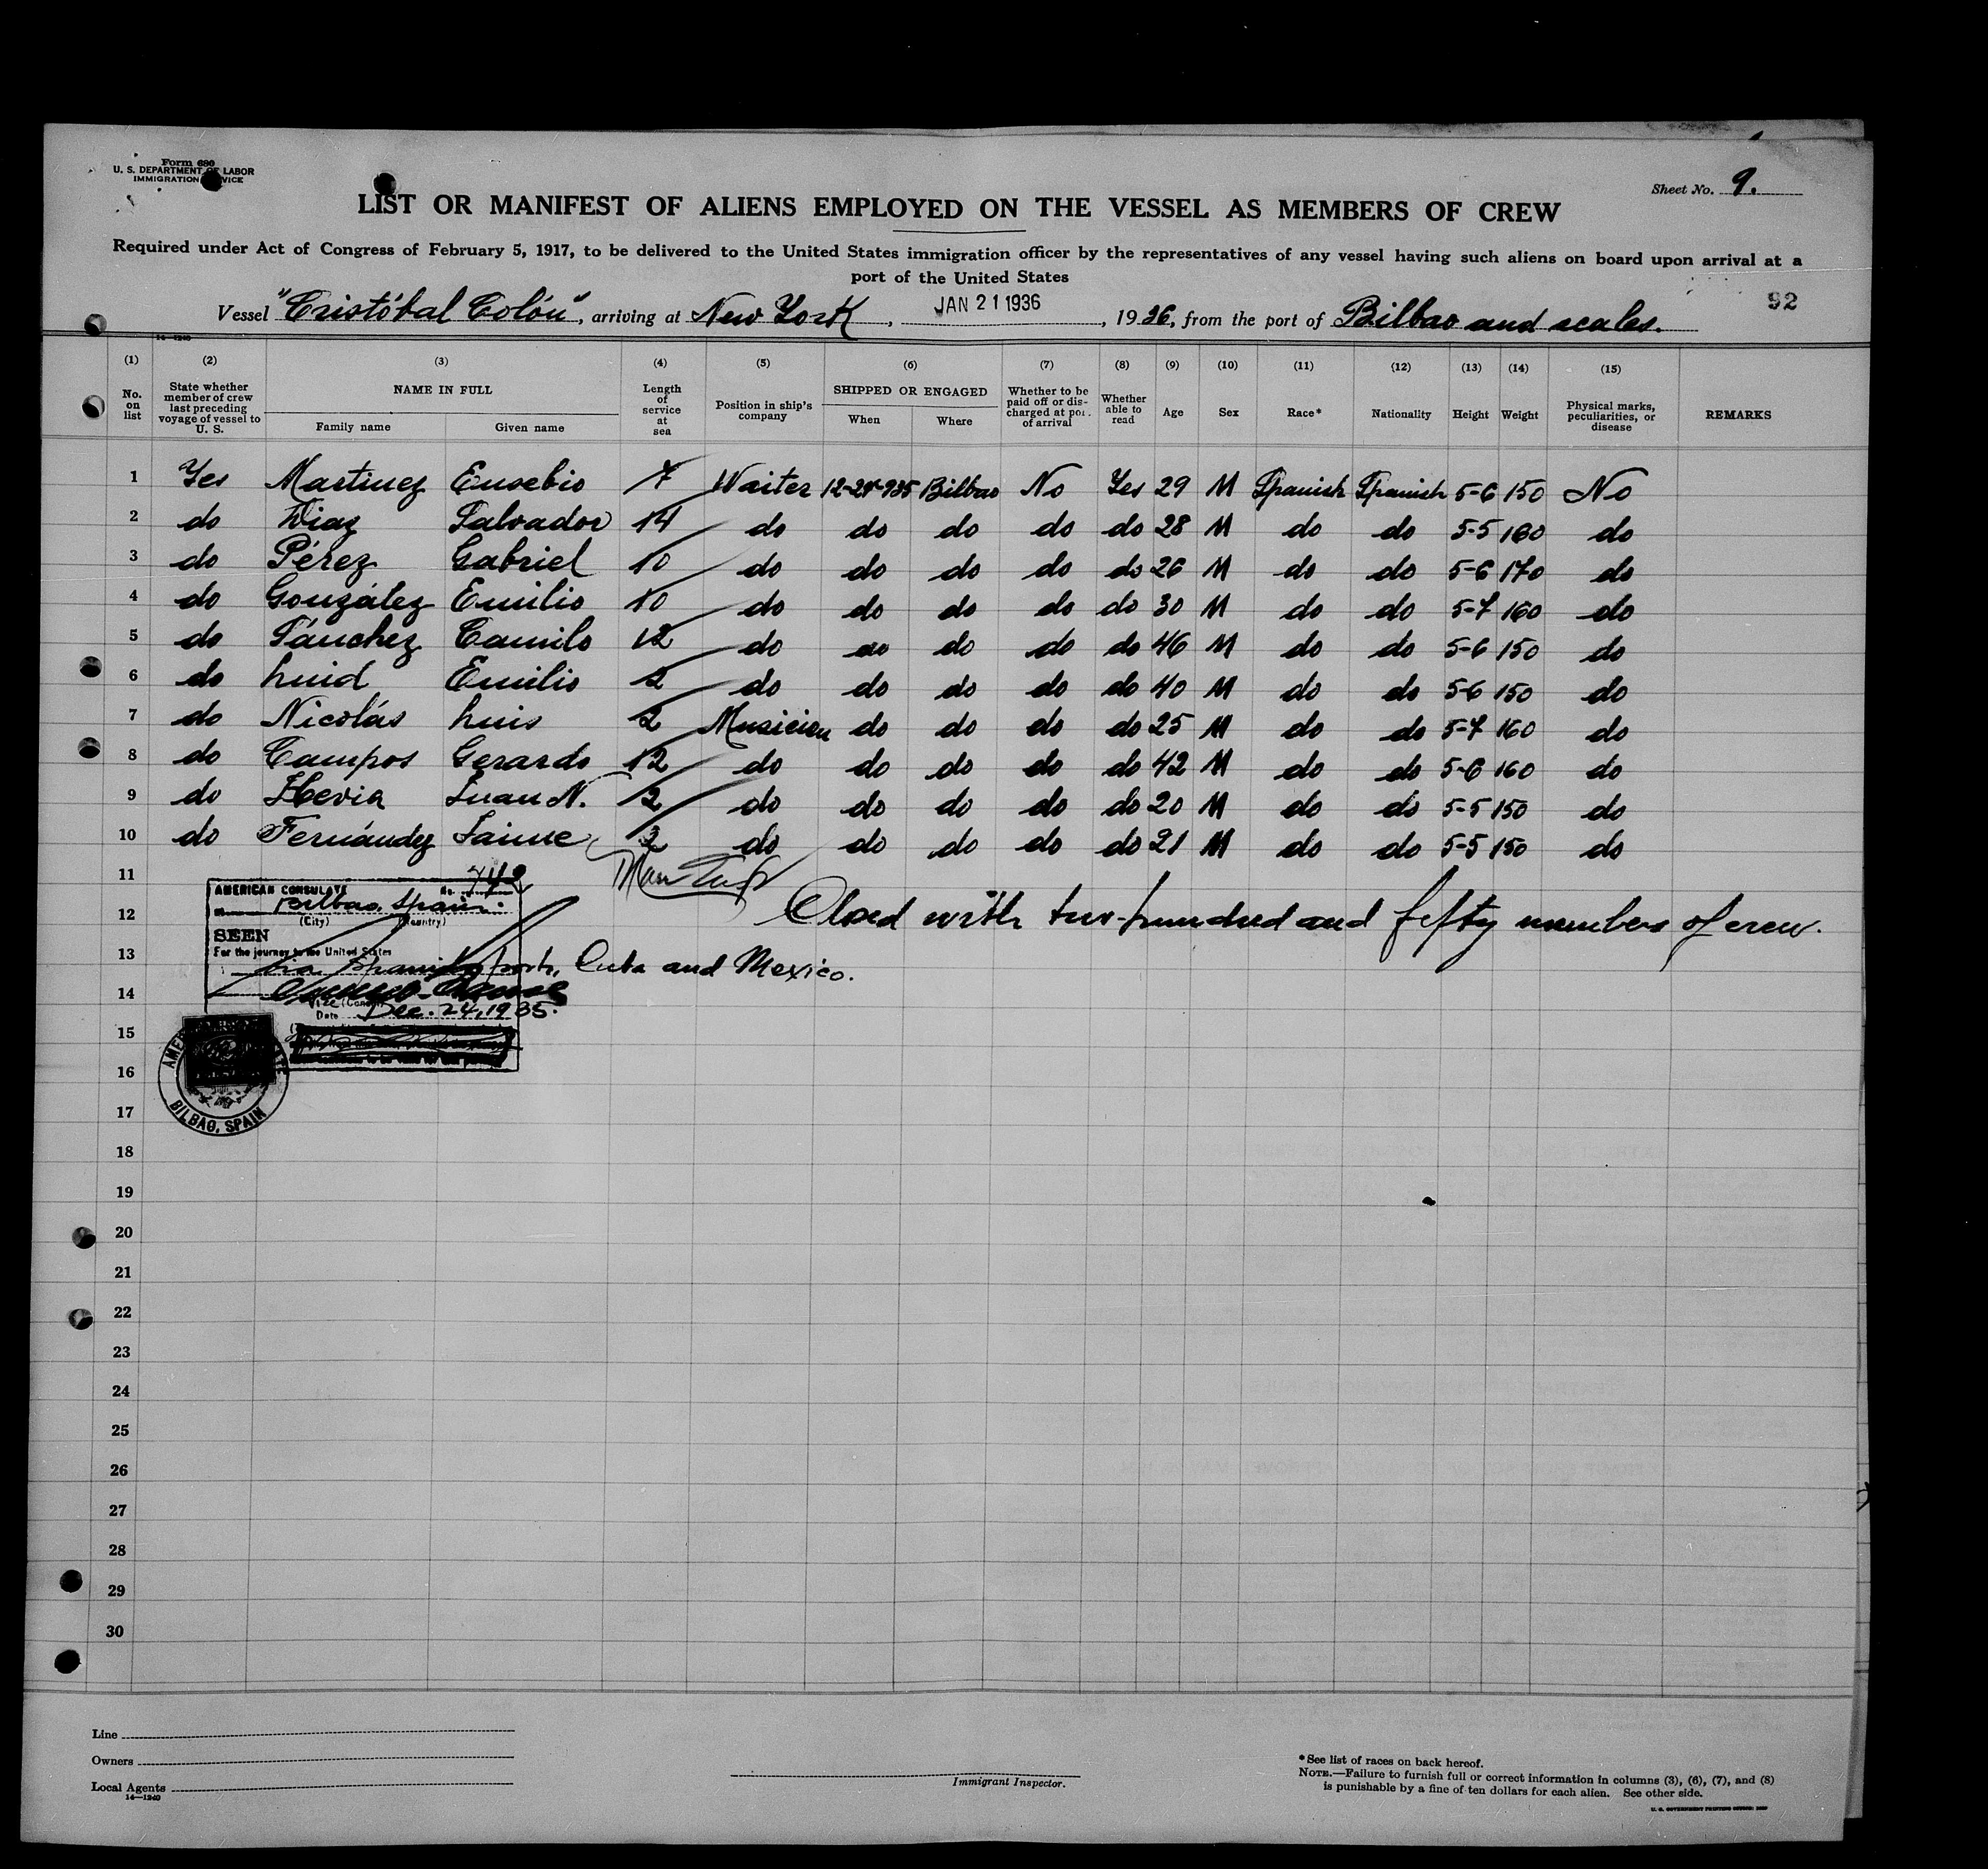 Form 680
U. S. DEPARTMENT OF LABOR
IMMIGRATION SERVICE
Sheet No. 9.
LIST OR MANIFEST OF ALIENS EMPLOYED ON THE VESSEL AS MEMBERS OF CREW
Required under Act of Congress of February 5, 1917, to be delivered to the United States immigration officer by the representatives of any vessel having such aliens on board upon arrival at a
port of the United States
92
Vessel "Cristóbal Colón", arriving at New York, JAN 21 1936, 1936, from the port of Bilbao and scales.
14—1240
(1) (2) (3) (4) (5) (6) (7) (8) (9) (10) (11) (12) (13) (14) (15)
No. on list
State whether member of crew last preceding voyage of vessel to U. S.
NAME IN FULL
Family name Given name
Length of service at sea
Position in ship's company
SHIPPED OR ENGAGED
When Where
Whether to be paid off or discharged at port of arrival
Whether able to read
Age
Sex
Race*
Nationality
Height
Weight
Physical marks, peculiarities, or disease
REMARKS
1 Yes Martinez Eusebio 7 Waiter 12-24-935 Bilbao No Yes 29 M Spanish Spanish 5-6 150 No
2 do Diaz Salvador 14 do do do do do 28 M do do 5-5 160 do
3 do Pérez Gabriel 10 do do do do do 26 M do do 5-6 170 do
4 do González Emilio 10 do do do do do 30 M do do 5-7 160 do
5 do Sánchez Camilo 12 do do do do do 46 M do do 5-6 150 do
6 do Luid Emilio 2 do do do do do 40 M do do 5-6 150 do
7 do Nicolás Luis 2 Musician do do do do 25 M do do 5-7 160 do
8 do Campos Gerardo 12 do do do do do 42 M do do 5-6 160 do
9 do Hevia Juan N. 2 do do do do do 20 M do do 5-5 150 do
10 do Fernández Jaime 2 do do do do do 21 M do do 5-5 150 do
11
AMERICAN CONSULATE No. 442
Bilbao, Spain.
(City) (Country)
12 Closed with two-hundred and fifty members of crew.
SEEN
For the journey to the United States
13
via Spanish ports, Cuba and Mexico.
14
Vice (Consul)
Date Dec. 24, 1935.
15
16
BILBAO, SPAIN
17
18
19
20
21
22
23
24
25
26
27
28
29
30
Line
Owners
Local Agents
14—1240
Immigrant Inspector.
*See list of races on back hereof.
NOTE.—Failure to furnish full or correct information in columns (3), (6), (7), and (8)
is punishable by a fine of ten dollars for each alien. See other side.